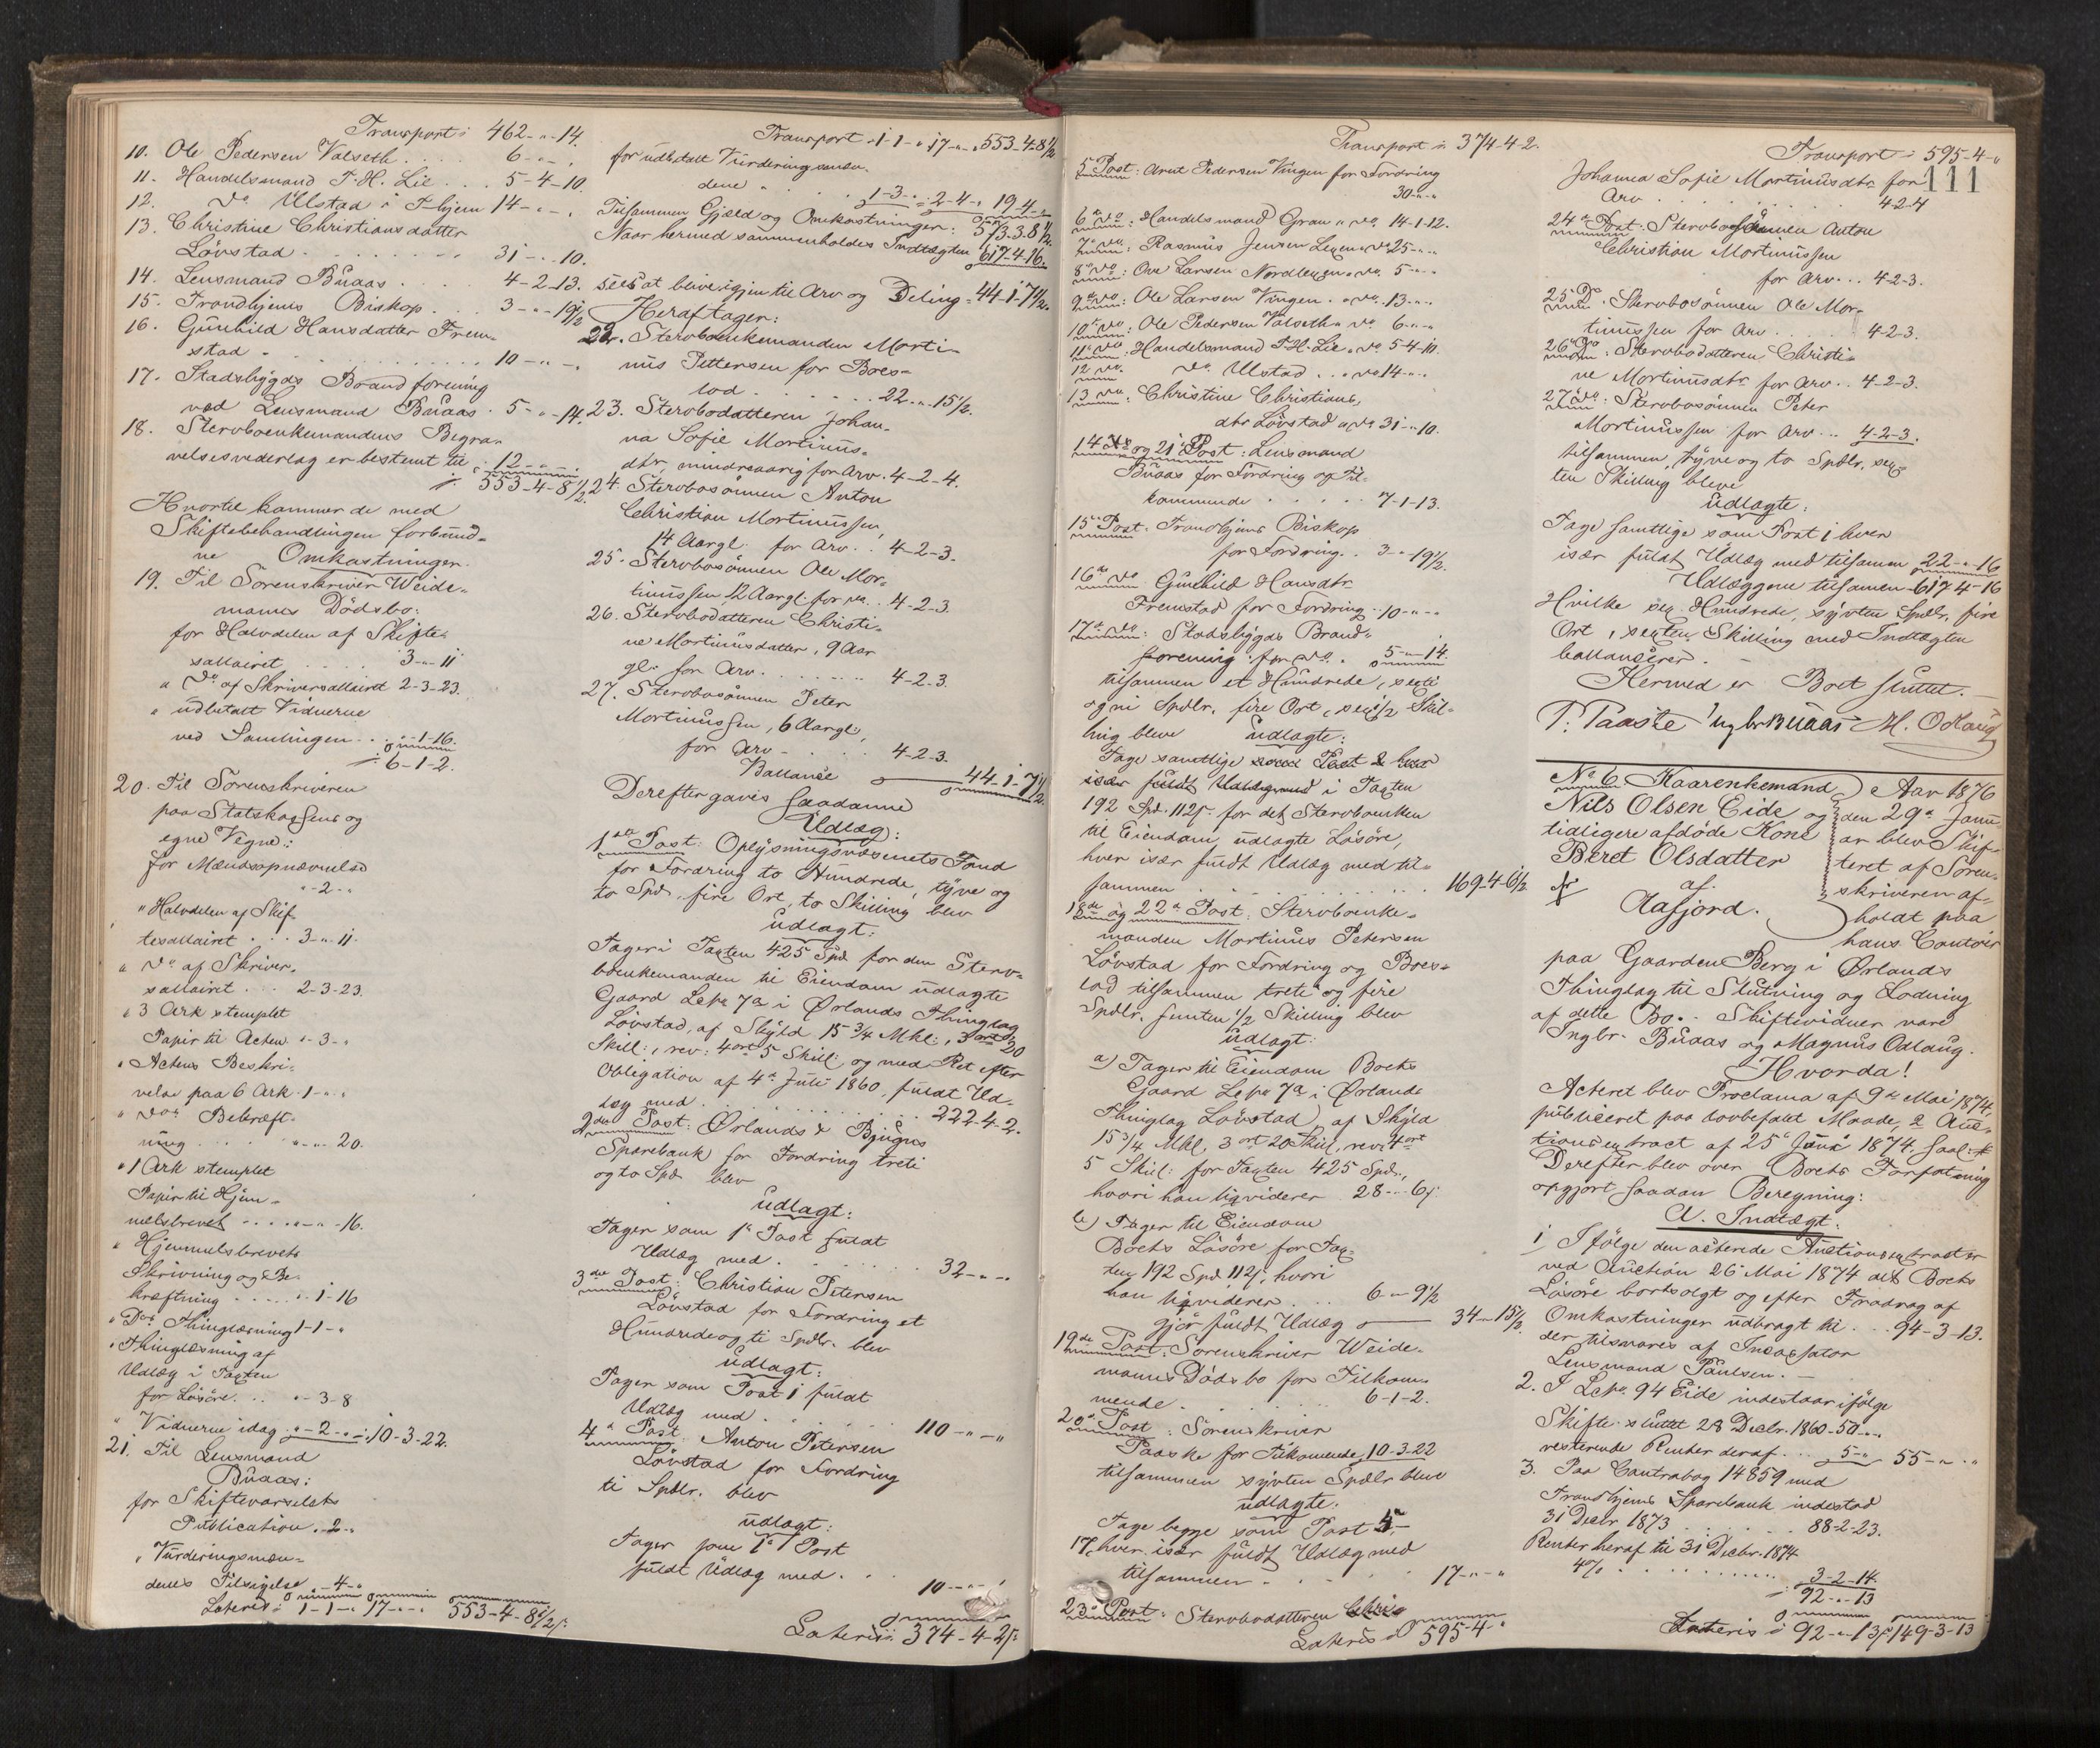 Transport: 462-"-14.
10. Ole Pedersen Valseth . . . . 6-"-".
11. Handelsmand T. H. Lie . . . 5-4-10.
12. Do Ulstad i T-hjem 14-"-".
13. Christine Christiansdatter
Lövstad . . . . . . . . 31-"-10.
14. Lensmand Buaas . . . . 4-2-13.
15. Trondhjems Biskop . . . 3-"-19½
16. Gunhild Hansdatter Frem-
stad . . . . . . . . . 10-"-".
17. Stadsbygds Brandforening
ved Lensmand Buaas . 5-"-14.
18. Stervboenkemandens Begra-
velsesvederlag er bestemt til . 12-"-"
553-4-8½
Hvortil kommer de med
Skiftebehandlingen forbund-
ne Omkostninger.
19. Til Sorenskriver Weide-
manns Dödsbo:
for Halvdelen af Skifte-
sallairet . . . . . 3-"-11
" Do af Skriversallairet 2-3-23.
" udbetalt Vidnerne
ved Samlingen . . "-1-16.
6-1-2.
20. Til Sorenskriveren
paa Statskassens og
egne Vegne:
for Mændsopnævnelse
"-2-"
" Halvdelen af Skif-
tesallairet . . . 3-"-11.
" Do af Skriver-
sallairet . . . 2-3-23.
" 3 Ark stemplet
Papir til Acten "-3-"
" Actens Beskri-
velse paa 6 Ark . 1-"-"
" Dos Bekræft-
ning . . . . . "-"-20.
" 1 Ark stemplet
Papir til Hjem-
melsbrevet . . . . "-"-16.
" Hjemmelsbrevets
Skrivning og Be-
kræftning . . . . . "-1-16
" Dos Thinglæsning 1-1-"
" Thinglæsning af
Udlæg i Taxten
for Lösöre . . . "-3-8
" Vidnerne idag . "-2-" . 10-3-22.
21. Til Lensmand
Buaas:
for Skiftevarselets
Publication . "-2-"
" Vurderingsmæn-
denes Tilsigelse "-4-"
Lateris: 1-1-" 17-"-" 553-4-8½
Transport: 1-1-" 17-"-" 553-4-8½
for udbetalt Vurderingsmæn-
dene . . . . . 1-3-" 2-4-" 19-4-"
Tilsammen Gjæld og Omkostninger: 573-3-8½
Naar hermed sammenholdes Indtægten 617-4-16.
sees at blive igjen til Arv og Deling = 44-1-7½.
Heraf tager:
22. Stervboenkemanden Morti-
nus Pettersen for Boes-
lod . . . . . . 22-"-15½.
23. Stervbodatteren Johan-
na Sofie Mortinus-
dtr, mindreaarig for Arv . 4-2-4.
24. Stervbosönnen Anton
Christian Mortinussen,
14 Aar gl. for Arv . . 4-2-3.
25. Stervbosönnen Ole Mor-
tinussen 12 Aar gl. for do . . 4-2-3.
26. Stervbodatteren Christi-
ne Mortinusdatter, 9 Aar
gl. for Arv . . . . . . 4-2-3.
27. Stervbosönnen Peter
Mortinussen, 6 Aar gl.,
for Arv . . . . . 4-2-3.
Ballance 44-1-7½
Derefter gaves saadanne
Udlæg:
1ste Post: Oplysningsvæsenets Fond
for Fordring to Hundrede, tyve og
to Spd. fire Ort, to Skilling blev
udlagt:
Tager i Taxten 425 Spd. for den Sterv-
boenkemanden til Eiendom udlagte
Gaard Lepr 7a i Ørlands Thinglag
Lövstad, af Skyld 15¾ Mkl:, 3 ort 20
Skill:, rev: 4 ort 5 Skill: og med Ret efter
Obligation af 4de Juli 1860 fuldt Ud-
læg med . . . . . . . . . . . 222-4-2.
2den Post: Ørlands & Bjugns
Sparebank for Fordring treti
og to Spd. blev
udlagt:
Tager som 1ste Post fuldt
Udlæg med . . . . . . . 32-"-".
3die Post: Christian Petersen
Lövstad for Fordring et
Hundrede og ti Spdlr. blev
udlagt:
Tager som Post 1 fuldt
Udlæg med . . . . . . 110-"-"
4de Post. Anton Petersen
Lövstad for Fordring
ti Spdlr. blev
udlagt:
Tager som 1ste Post
fuldt Udlæg med . . . 10-"-"
Lateris: 374-4-2
Transport: 374-4-2.
5 Post: Arnt Pedersen Vingen for Fordring
30-"-"
6te do: Handelsmand Gran " do. 14-1-12.
7de do: Rasmus Jensen Lexen " do 25-"-"
8de do: Ove Larsen Nordlexen " do. 5-"-"
9de do: Ole Larsen Vingen . " do. 13-"-"
10de do: Ole Pedersen Valseth " do. 6-"-"
11te do: Handelsmand T. H. Lie " do. 5-4-10.
12 do. Do Ulstad . . " do 14-"-"
13 do: Christine Christians-
dtr Lövstad " do 31-"-10.
14de og 21de Post: Lensmand
Buaas for Fordring og Til-
kommende . . . . . 7-1-13.
15de Post. Trondhjems Biskop
for Fordring . . 3-"-19½.
16de do Gunhild Hansdtr
Fremstad for Fordring . 10-"-"
17de do: Stadsbygds Brand-
forening for do. 5-"-14.
tilsammen et Hundrede, sexti
og ni Spdlr. fire Ort, sex ½ Skil-
ling bleve udlagte:
Tage samtlige
i Taxten
192 Spd. 112 ſ. for det Stervboenken
til Eiendom udlagte Lösöre,
hver især fuldt Udlæg med til-
sammen . . . . . . . . . . 169-4-6½
18de og 22de Post: Stervboenke-
manden Mortinus Petersen
Lövstad for Fordring og Boes-
lod tilsammen treti og fire
Spdlr. femten ½ Skilling blev
udlagt:
a) Tager til Eiendom Boets
Gaard Lepr 7a i Ørlands
Thinglag Lövstad, af Skyld
15¾ Mkl, 3 ort 20 Skill, rev: 4 ort
5 Skil: for Taxten 425 Spd.,
hvori han liqviderer 28-"-6
b) Tager til Eiendom
Boets Lösöre for Tax-
ten 192 Spd 112 ſ, hvori
han liqviderer . . . 6-"-9½
gjör fuldt Udlæg 34-"-15½
19de Post: Sorenskriver Weide-
manns Dödsbo for Tilkom-
mende . . . . . . 6-1-2.
20de Post: Sorenskriver
Paaske for Tilkommende 10-3-22
tilsammen sytten Spdlr bleve
udlagte:
Tage begge som Post 5-
17, hver især fuldt Udlæg med
tilsammen . . . . . . 17-"-"
23de Post: Stervbodatteren
Lateris: 595-4-"
111
Transport: 595-4-"
Johanna Sofie Mortinusdtr for
Arv . . . . . . . . 4-2-4
24de Post: Stervbosönnen Anton
Christian Mortinussen
for Arv . . . 4-2-3.
25 Do. Stervbosönnen Ole Mor-
tinussen for Arv . . . . 4-2-3.
26de Do: Stervbodatteren Christi-
ne Mortinusdtr for Arv . . 4-2-3.
27de do: Stervbosönnen Peter
Mortinussen for Arv . . 4-2-3.
tilsammen, tyve og to Spdlr, sex-
ten Skilling bleve
udlagte:
Tage samtlige som Post 1 hver
især fuldt Udlæg med tilsamen 22-"-16
Udlæggene tilsamen 617-4-16
Hvilke sex Hundrede, sytten Spdlr, fire
Ort, sexten Skilling med Indtægten
ballancerer.
Hermed er Boet sluttet.
P. Paaske Ingbr Buaas M. Odlaug
No 6. Kaarenkemand
Nils Olsen Eide og
tidligere afdöde Kone
Beret Olsdatter
af
Aafjord.
Aar 1876
den 29de Janu-
ar blev Skif-
teret af Soren-
skriveren af-
holdt paa
hans Contoir
paa Gaarden Berg i Ørlands
Thinglag til Slutning og Lodning
af dette Bo. - Skiftevidner vare
Ingbr. Buaas og Magnus Odlaug.
Hvorda!
Acteret blev Proclama af 9de Mai 1874,
publiceret paa lovbefalet Maade, & Auc-
tionsextract af 25de Juni 1874. saal:
Derefter blev over Boets Forfatning
opgjort saadan Beregning:
A. Indtægt:
1, Ifölge den acterede Auctionsextract er
ved Auction 26 Mai 1874 det Boets
Lösöre bortsolgt og efter Fradrag af
Omkostninger udbragt til . . . 94-3-13.
der tilsvares af Incassator
Lensmand Paulsen. -
2. I Lepr. 94 Eide indestaar ifölge
Skifte sluttet 28 Decbr. 1860 - 50-"-"
resterende Renter deraf . . . 5-" 55-"-"
3. Paa Contrabog 14859 med
Trondhjems Sparebank indestod
31 Decbr 1873 . . . . . . 88-2-23.
Renter heraf til 31 Decbr. 1874
4% . . . . . . . . . 3-2-14.
92-"-13
Lateris: 92-"-13 149-3-13